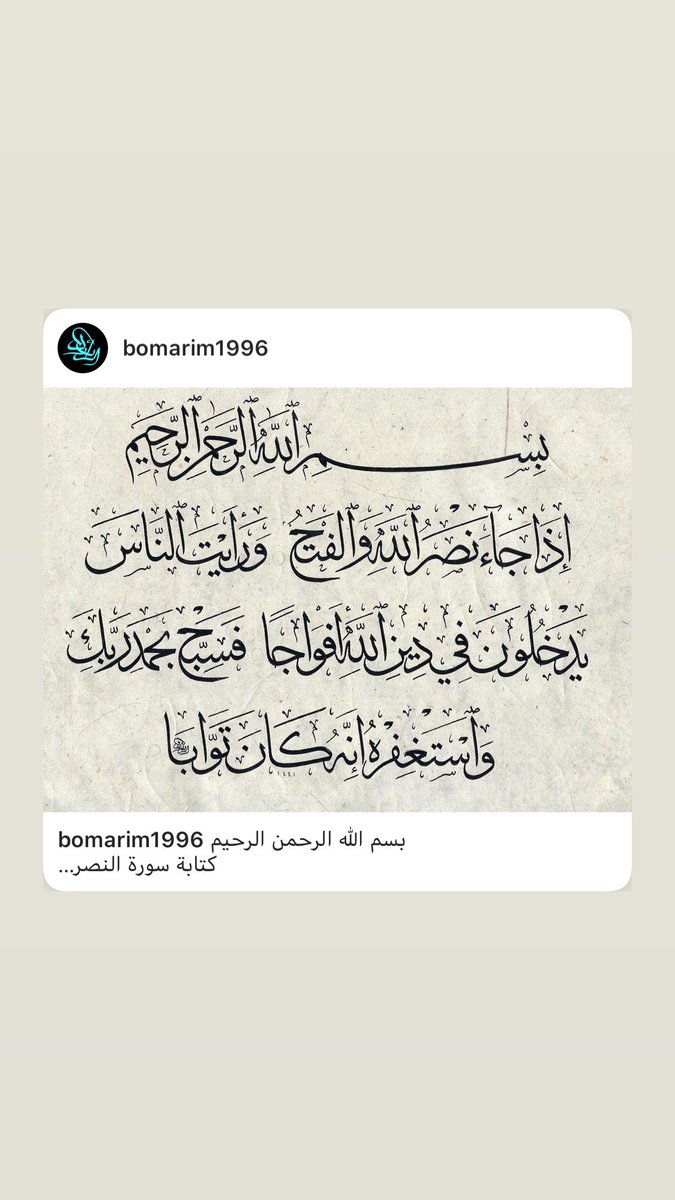 bomarim1996
بِسْمِ ٱللَّهِ ٱلرَّحْمَٰنِ ٱلرَّحِيمِ
إِذَا جَآءَ نَصْرُ ٱللَّهِ وَٱلْفَتْحُ وَرَأَيْتَ ٱلنَّاسَ
يَدْخُلُونَ فِي دِينِ ٱللَّهِ أَفْوَاجًا فَسَبِّحْ بِحَمْدِ رَبِّكَ
وَٱسْتَغْفِرْهُ إِنَّهُ كَانَ تَوَّابًا
١٤٤١
bomarim1996 بسم الله الرحمن الرحيم
كتابة سورة النصر...